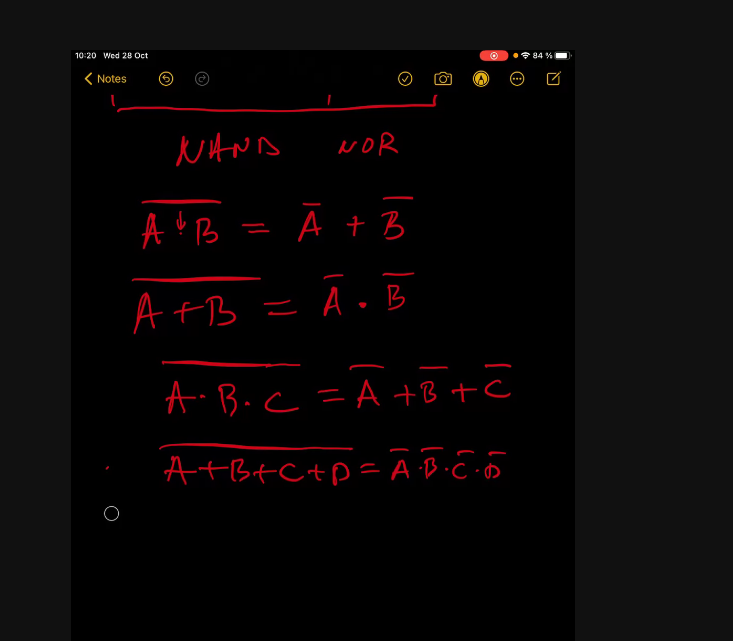 10:20 Wed 28 Oct 84 %
Notes
NAND NOR
A̅ ̅↓̅ ̅B̅ = A̅ + B̅
A̅ ̅+̅ ̅B̅ = A̅ · B̅
A̅ ̅·̅ ̅B̅ ̅·̅ ̅C̅ = A̅ + B̅ + C̅
A̅ ̅+̅ ̅B̅ ̅+̅ ̅C̅ ̅+̅ ̅D̅ = A̅ · B̅ · C̅ · D̅